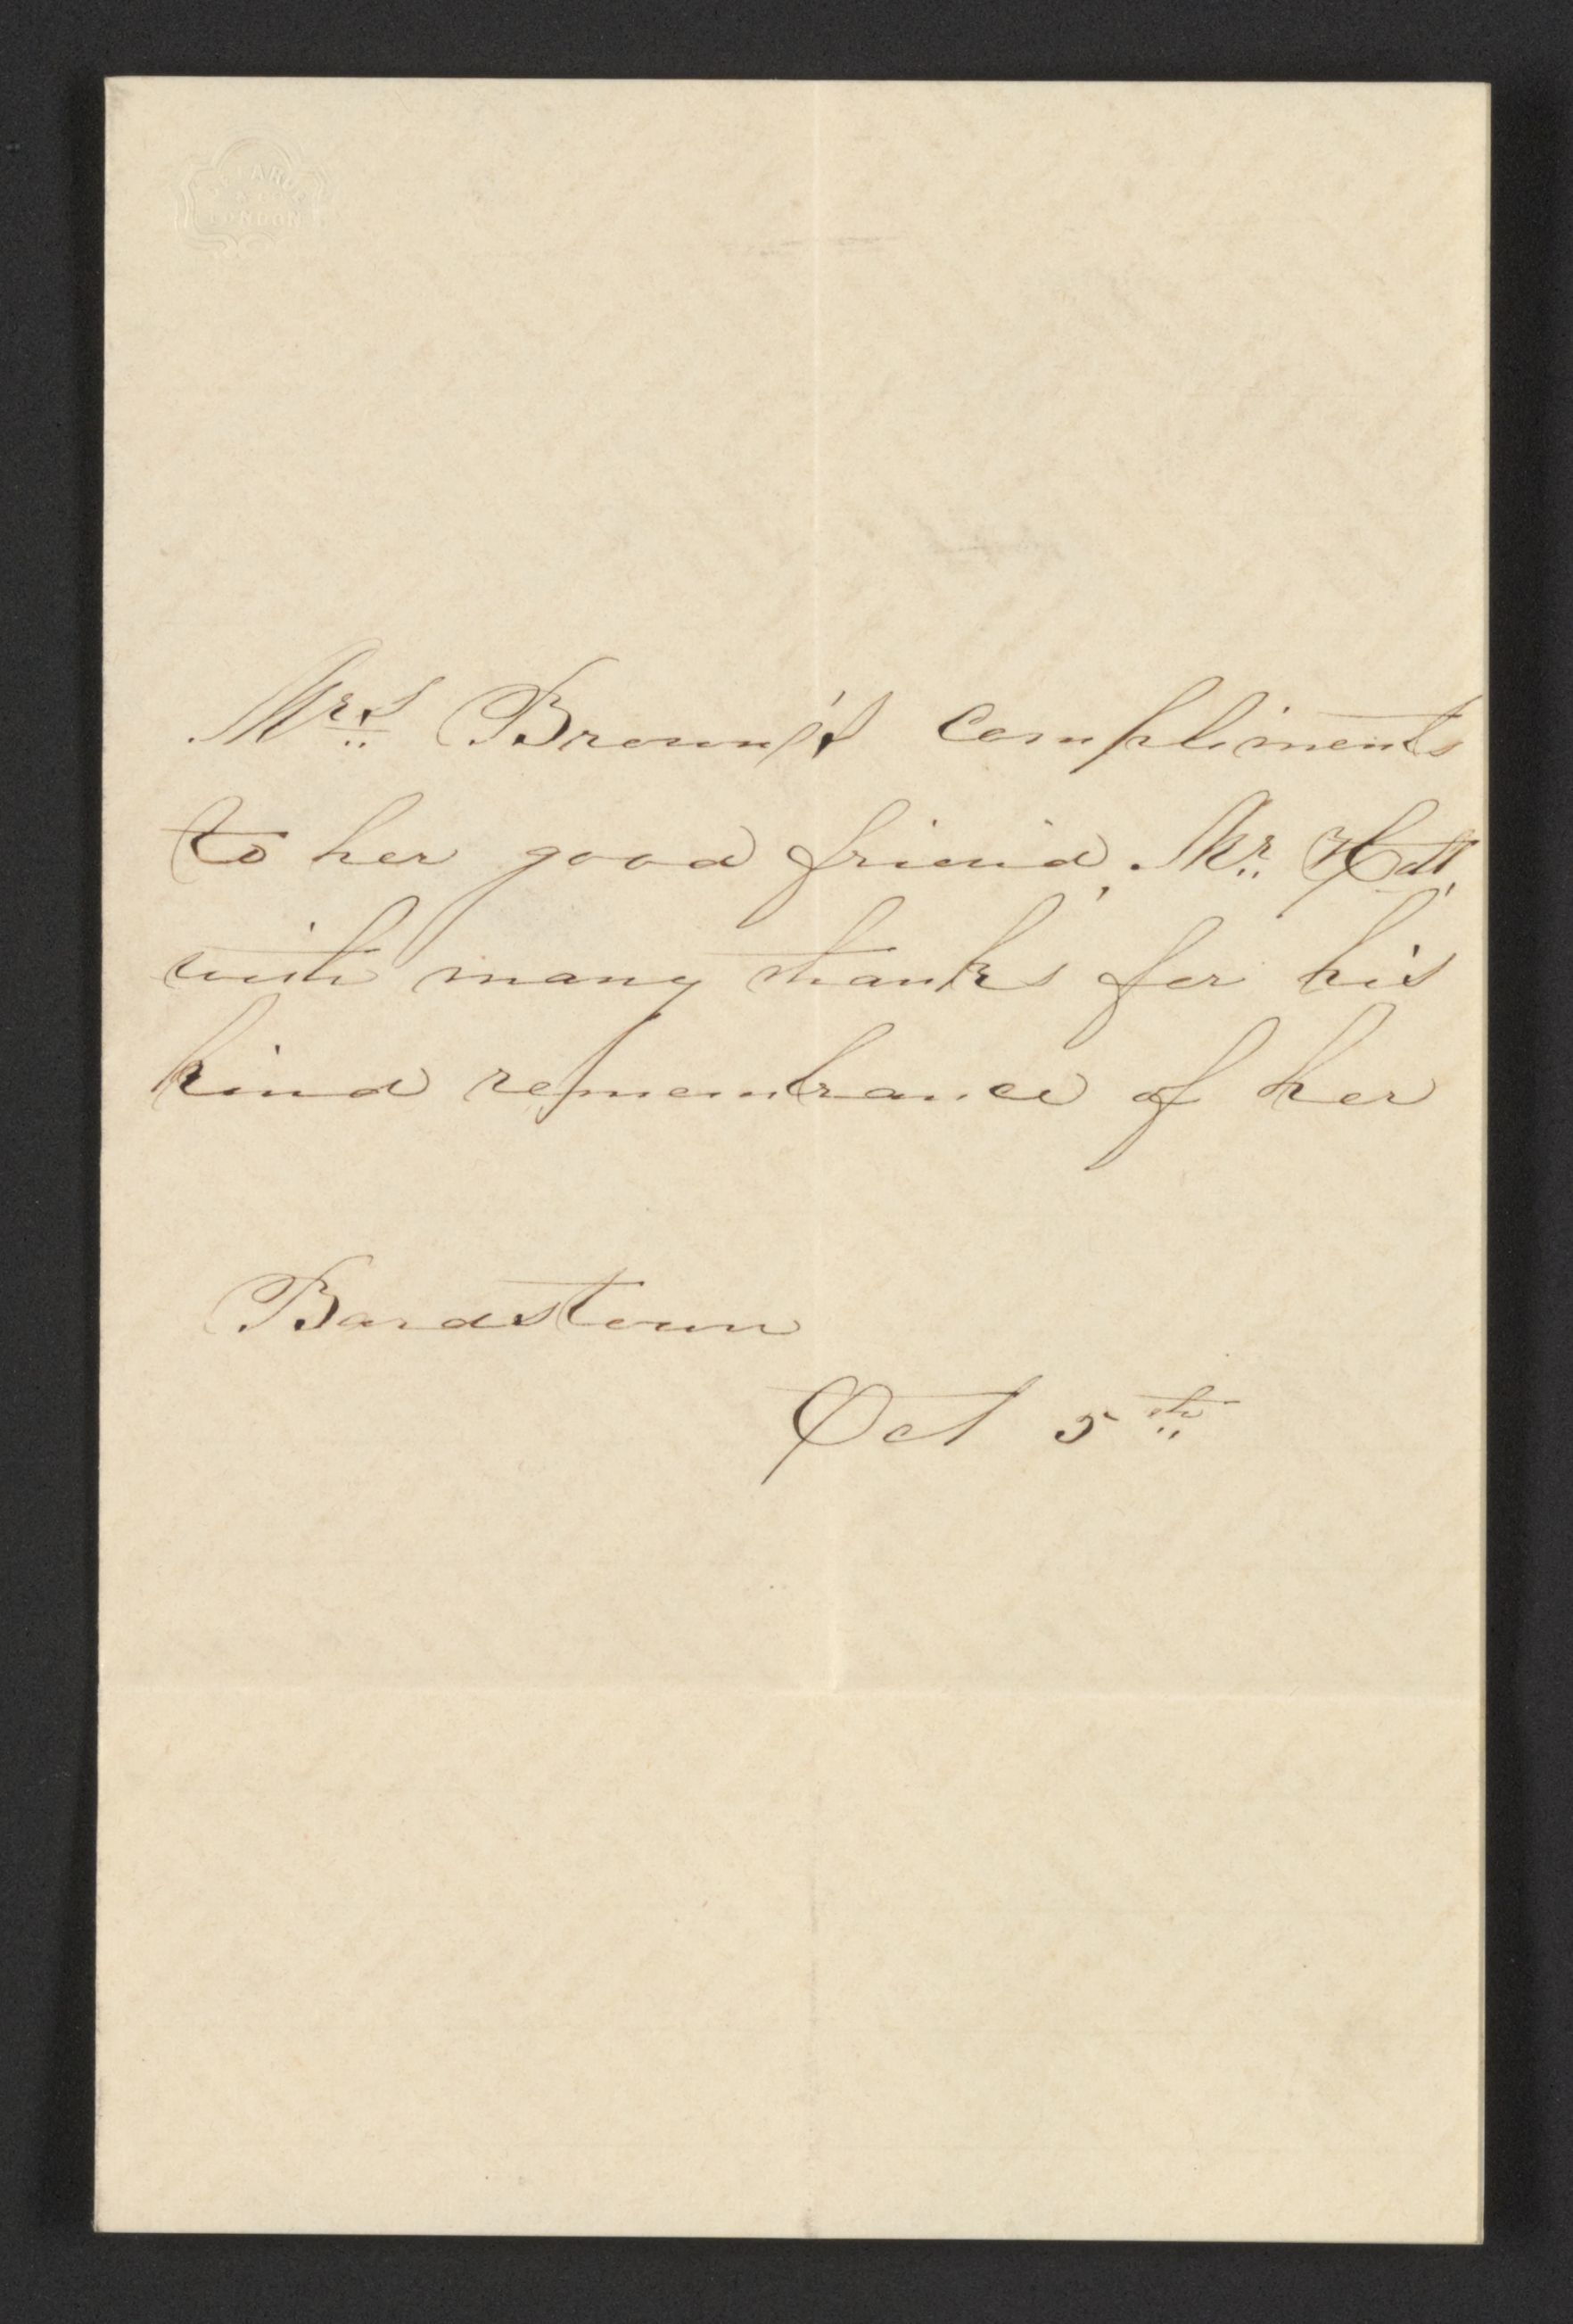 LONDON
Mrs Brown's compliments
to her good friend, Mr
with many thanks for his
kind remembrance of her
Bardstown
Oct 5th